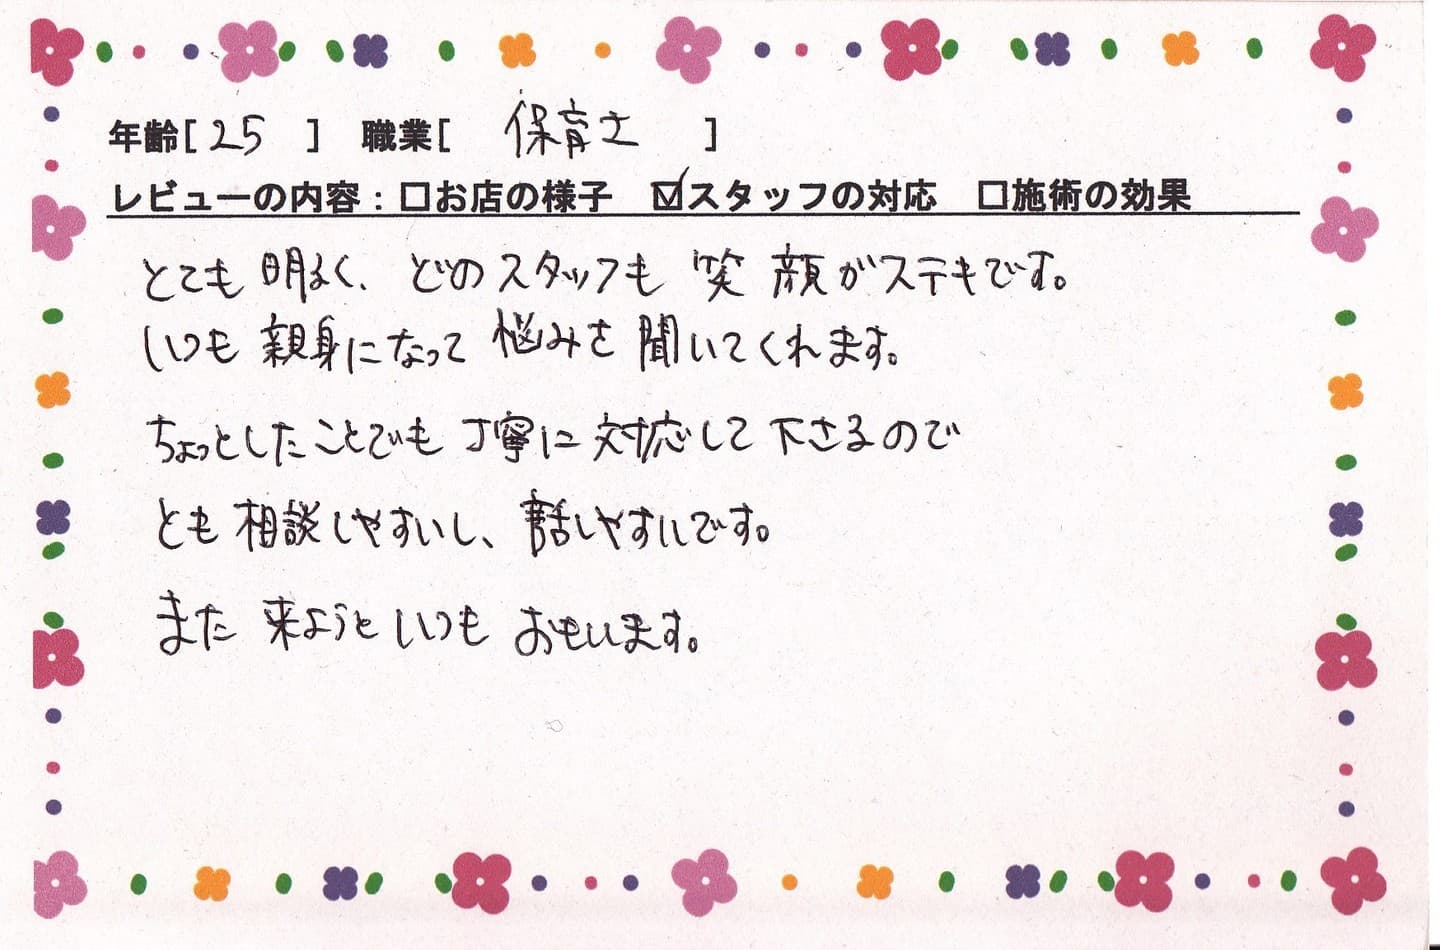 年齢[ 25 ] 職業[ 保育士 ]
レビューの内容：□お店の様子 ☑スタッフの対応 □施術の効果
とても明るく、どのスタッフも笑顔がステキです。
いつも親身になって悩みを聞いてくれます。
ちょっとしたことでも丁寧に対応して下さるので
とも相談しやすいし、話しやすいです。
また来ようといつもおもいます。